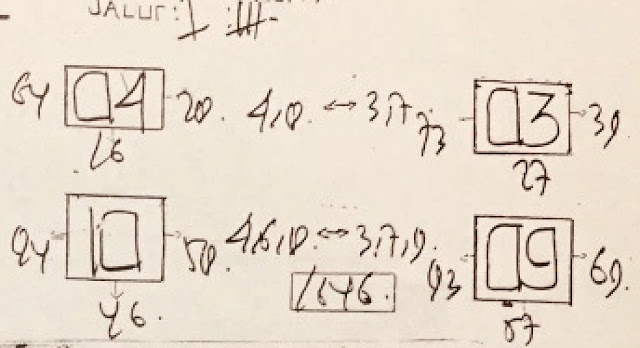 JALUR: I
64 04 20. 4,0. ↔ 3,7 73 03 39.
16 27
10 50. 4,6,0. ↔ 3,7,9. 09 69.
1646.
46. 57